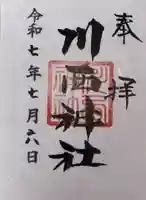 奉拝
川西神社
令和七年七月六日